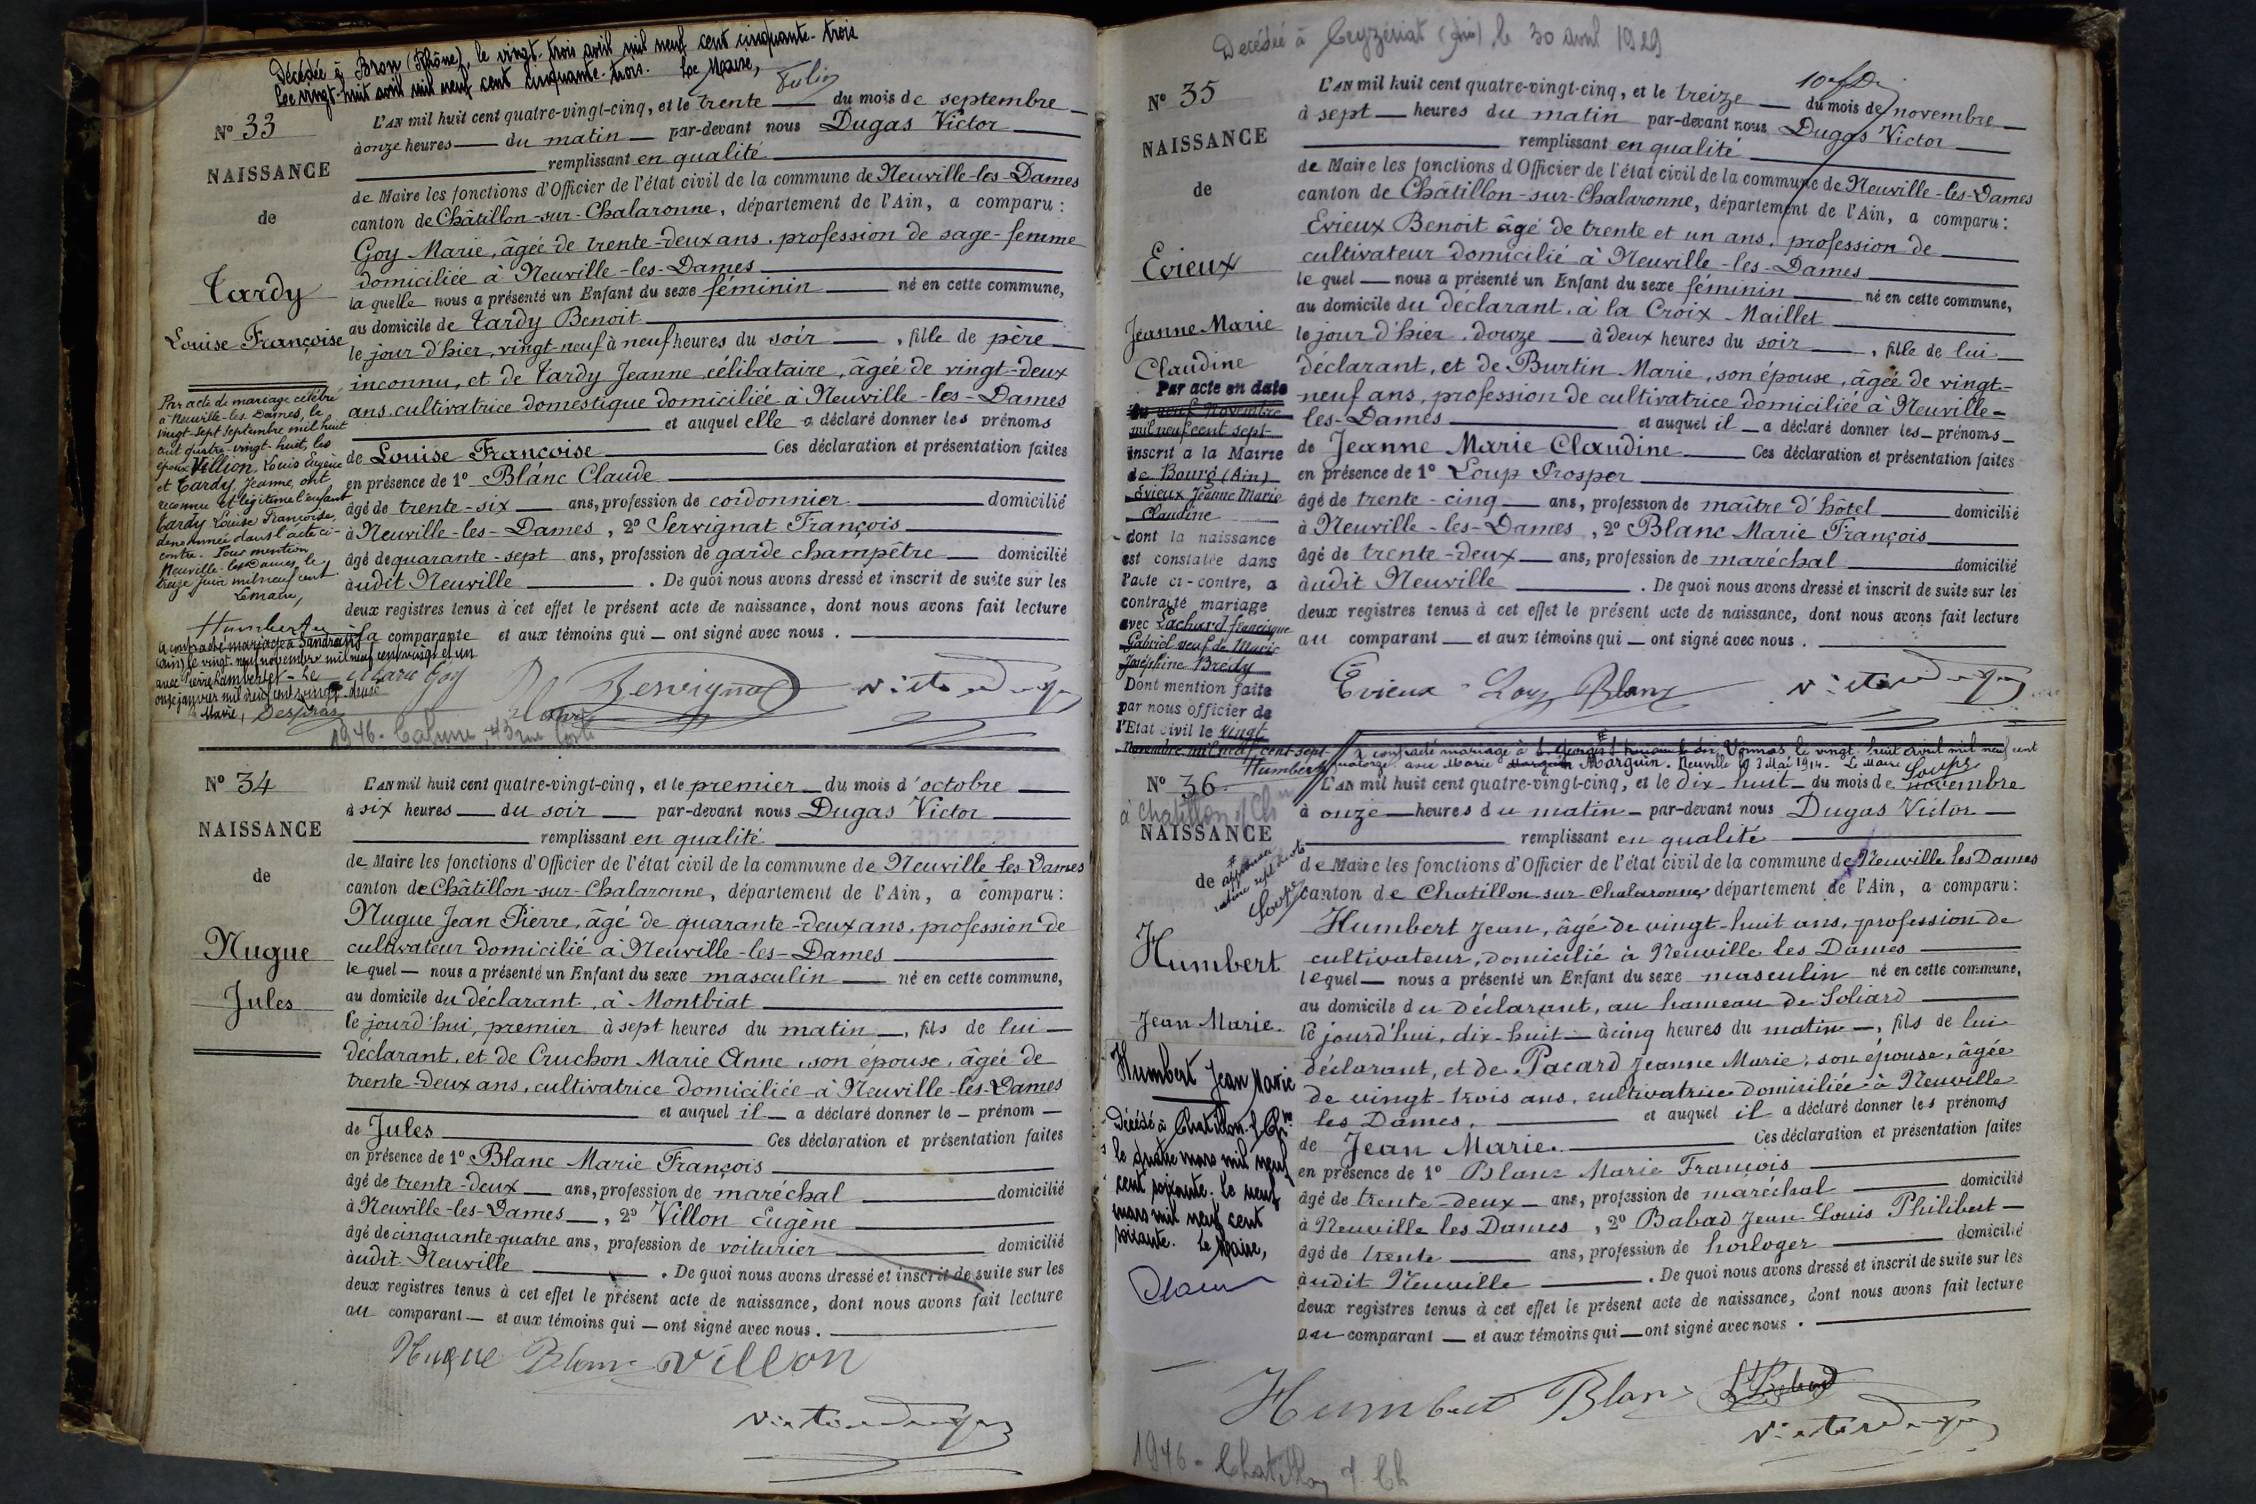 Décédée à Bron (Rhône), le vingt-trois avril mil neuf cent cinquante-trois
Le vingt-huit avril mil neuf cent cinquante-trois. Le Maire,
N° 33
NAISSANCE
de
Tardy
Louise Françoise
Par acte de mariage célébré
à Neuville-les-Dames, le
vingt-sept septembre mil huit
cent quatre-vingt-huit, les
époux Villion, Louis Eugène
et Tardy, Jeanne, ont
reconnu et légitimé l'enfant
Tardy Louise Françoise,
dénommée dans l'acte ci-
contre. Pour mention
Neuville-les-Dames, le
treize juin mil neuf cent
Le maire,
Humbert
A contracté mariage à Sandrans
(Ain) le vingt-neuf novembre mil neuf cent vingt et un
avec Pierre Humbert - Le
onze janvier mil neuf cent vingt-deux
Le Maire,
L'AN mil huit cent quatre-vingt-cinq, et le trente du mois de septembre
à onze heures du matin par-devant nous Dugas Victor
remplissant en qualité
de Maire les fonctions d'Officier de l'état civil de la commune de Neuville-les-Dames
canton de Châtillon-sur-Chalaronne, département de l'Ain, a comparu :
Goy Marie, âgée de trente-deux ans, profession de sage-femme
domiciliée à Neuville-les-Dames
la quelle nous a présenté un Enfant du sexe féminin né en cette commune,
au domicile de Tardy Benoit
le jour d'hier, vingt-neuf à neuf heures du soir, fille de père
inconnu, et de Tardy Jeanne, célibataire, âgée de vingt-deux
ans cultivatrice domestique domiciliée à Neuville-les-Dames
et auquel elle a déclaré donner les prénoms
de Louise Françoise Ces déclaration et présentation faites
en présence de 1° Blanc Claude
âgé de trente-six ans, profession de cordonnier domicilié
à Neuville-les-Dames, 2° Servignat François
âgé de quarante-sept ans, profession de garde champêtre domicilié
audit Neuville. De quoi nous avons dressé et inscrit de suite sur les
deux registres tenus à cet effet le présent acte de naissance, dont nous avons fait lecture
à la comparante et aux témoins qui ont signé avec nous.
Marie Goy Blanc Servignat Victor Dugas
N° 34
NAISSANCE
de
Nugue
Jules
L'AN mil huit cent quatre-vingt-cinq, et le premier du mois d'octobre
à six heures du soir par-devant nous Dugas Victor
remplissant en qualité
de Maire les fonctions d'Officier de l'état civil de la commune de Neuville-les-Dames
canton de Châtillon-sur-Chalaronne, département de l'Ain, a comparu :
Nugue Jean Pierre, âgé de quarante-deux ans, profession de
cultivateur domicilié à Neuville-les-Dames
le quel nous a présenté un Enfant du sexe masculin né en cette commune,
au domicile du déclarant, à Montbiat
le jourd'hui, premier à sept heures du matin, fils de lui
déclarant, et de Cruchon Marie Anne, son épouse, âgée de
trente-deux ans, cultivatrice domiciliée à Neuville-les-Dames
et auquel il a déclaré donner le prénom
de Jules Ces déclaration et présentation faites
en présence de 1° Blanc Marie François
âgé de trente-deux ans, profession de maréchal domicilié
à Neuville-les-Dames, 2° Villon Eugène
âgé de cinquante-quatre ans, profession de voiturier domicilié
audit Neuville. De quoi nous avons dressé et inscrit de suite sur les
deux registres tenus à cet effet le présent acte de naissance, dont nous avons fait lecture
au comparant et aux témoins qui ont signé avec nous.
Nugue Blanc Villon
Victor Dugas
Decédée à Ceyzériat (Ain), le 30 avril 1929
N° 35
NAISSANCE
de
Evieux
Jeanne Marie
Claudine
Par acte en date
du neuf Novembre
mil neuf cent sept
inscrit à la Mairie
de Bourg (Ain)
Evieux Jeanne Marie
Claudine
dont la naissance
est constatée dans
l'acte ci-contre, a
contracté mariage
avec Lachard Francisque
Gabriel veuf de Marie
Joséphine Bredy
Dont mention faite
par nous officier de
l'Etat civil le vingt
Novembre mil neuf cent sept
Humbert
L'AN mil huit cent quatre-vingt-cinq, et le treize du mois de novembre
à sept heures du matin par-devant nous Dugas Victor
remplissant en qualité
de Maire les fonctions d'Officier de l'état civil de la commune de Neuville-les-Dames
canton de Châtillon-sur-Chalaronne, département de l'Ain, a comparu :
Evieux Benoit âgé de trente et un ans, profession de
cultivateur domicilié à Neuville-les-Dames
le quel nous a présenté un Enfant du sexe féminin né en cette commune,
au domicile du déclarant, à la Croix Maillet
le jour d'hier, douze à deux heures du soir, fille de lui
déclarant, et de Burtin Marie, son épouse, âgée de vingt-
neuf ans, profession de cultivatrice domiciliée à Neuville-
les-Dames et auquel il a déclaré donner les prénoms
de Jeanne Marie Claudine Ces déclaration et présentation faites
en présence de 1° Loup Prosper
âgé de trente-cinq ans, profession de maître d'hôtel domicilié
à Neuville-les-Dames, 2° Blanc Marie François
âgé de trente-deux ans, profession de maréchal domicilié
audit Neuville. De quoi nous avons dressé et inscrit de suite sur les
deux registres tenus à cet effet le présent acte de naissance, dont nous avons fait lecture
au comparant et aux témoins qui ont signé avec nous.
Evieux Loup Blanc Victor Dugas
A contracté mariage à Vonnas, le vingt-huit avril mil neuf cent
quatorze avec Marie Marguin. Neuville le 3 Mai 1914. Le Maire
N° 36
à Chatillon s/ Ch
NAISSANCE
de
Humbert
Jean Marie.
Humbert Jean Marie
Décédé à Chatillon s/ Ch
le quatre mars mil neuf
cent soixante. Le neuf
mars mil neuf cent
soixante. Le Maire,
L'AN mil huit cent quatre-vingt-cinq, et le dix-huit du mois de novembre
à onze heures du matin par-devant nous Dugas Victor
remplissant en qualité
de Maire les fonctions d'Officier de l'état civil de la commune de Neuville les Dames
canton de Chatillon-sur-Chalaronne, département de l'Ain, a comparu :
Humbert Jean, âgé de vingt-huit ans, profession de
cultivateur, domicilié à Neuville les Dames
lequel nous a présenté un Enfant du sexe masculin né en cette commune,
au domicile du déclarant, au hameau de Soliard
le jourd'hui, dix-huit à cinq heures du matin, fils de lui
déclarant, et de Pacard Jeanne Marie, son épouse, âgée
de vingt-trois ans, cultivatrice domiciliée à Neuville
les Dames. et auquel il a déclaré donner les prénoms
de Jean Marie. Ces déclaration et présentation faites
en présence de 1° Blanc Marie François
âgé de trente-deux ans, profession de maréchal domicilié
à Neuville les Dames, 2° Babad Jean Louis Philibert
âgé de trente ans, profession de horloger domicilié
audit Neuville. De quoi nous avons dressé et inscrit de suite sur les
deux registres tenus à cet effet le présent acte de naissance, dont nous avons fait lecture
au comparant et aux témoins qui ont signé avec nous.
Humbert Blanc Babad
Victor Dugas
1946 - Chatillon s/ Ch